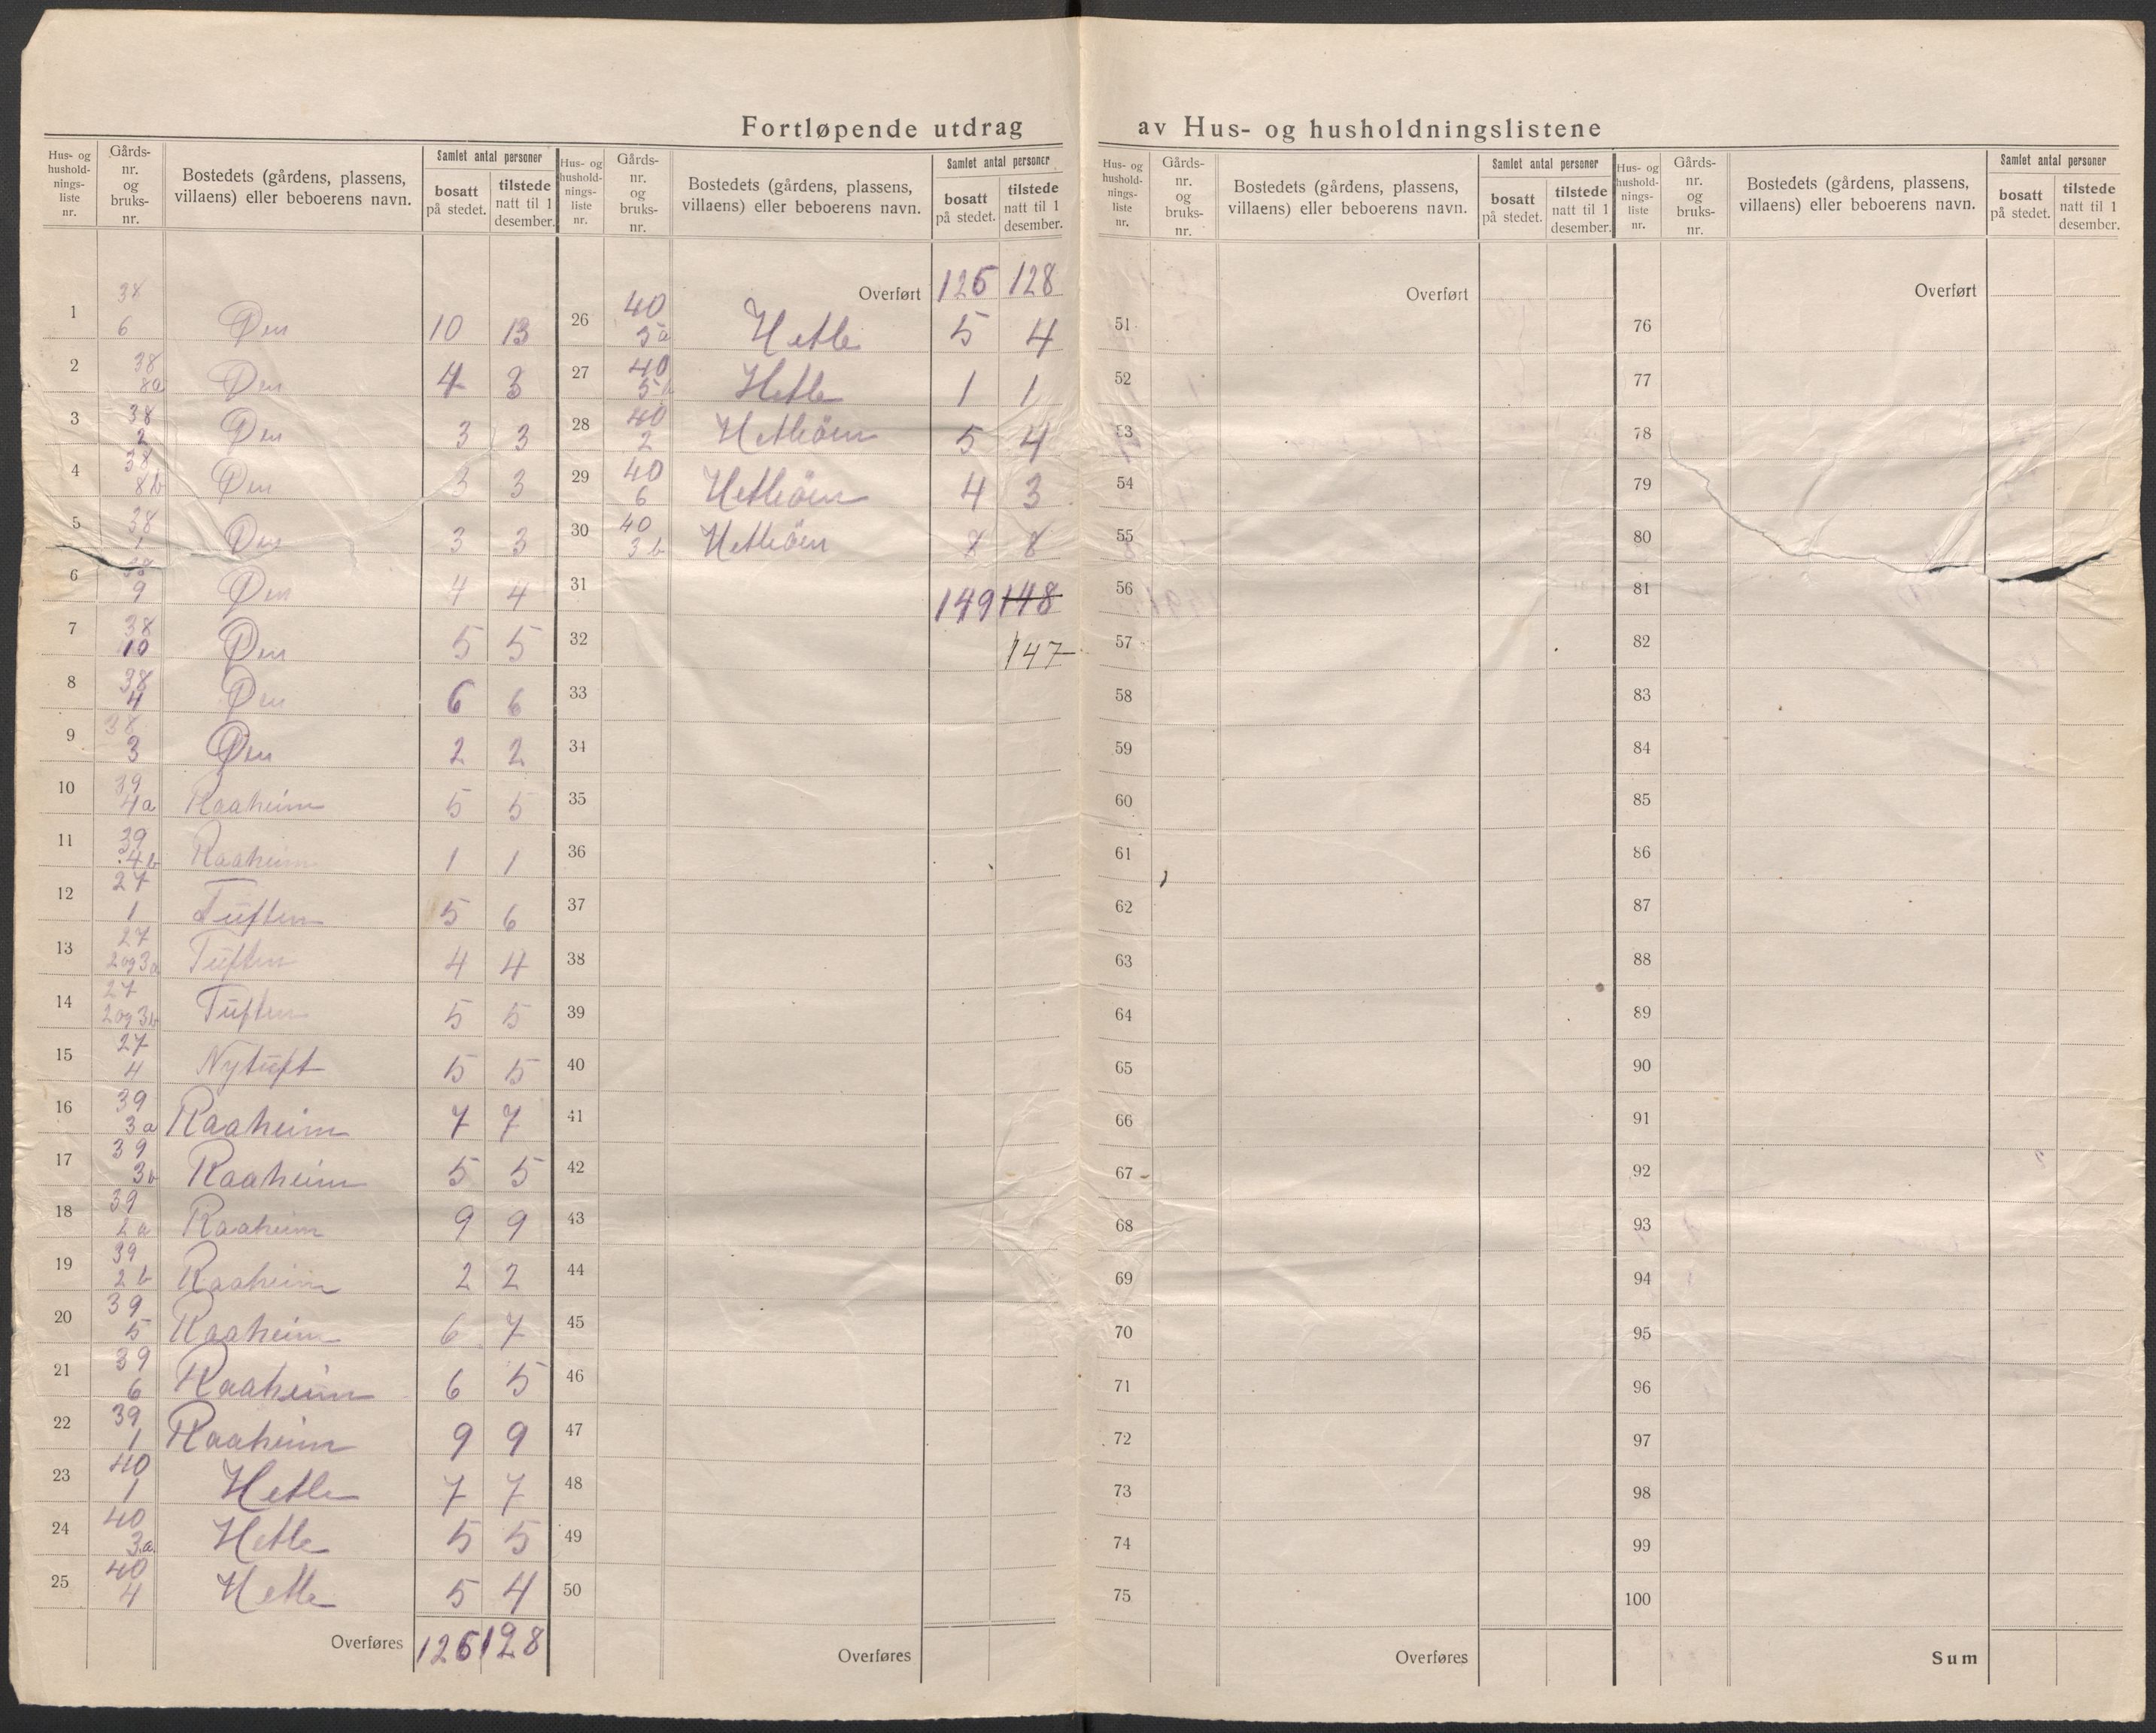 Fortløpende utdrag av Hus- og husholdningslistene
Hus- og hushold-nings-liste nr. | Gårds-nr. og bruks-nr. | Bostedets (gårdens, plassens, villaens) eller beboerens navn. | Samlet antal personer | bosatt på stedet. | tilstede natt til 1 desember.
1 38 6 Øen 10 13
2 38 8a Øen 4 3
3 38 2 Øen 3 3
4 38 8b Øen 3 3
5 38 1 Øen 3 3
6 38 9 Øen 4 4
7 38 10 Øen 5 5
8 38 4 Øen 6 6
9 38 3 Øen 2 2
10 39 4a Raaheim 5 5
11 39 4b Raaheim 1 1
12 27 1 Tuften 5 6
13 27 2og3a Tuften 4 4
14 27 2og3b Tuften 5 5
15 27 4 Nytuft 5 5
16 39 3a Raaheim 7 7
17 39 3b Raaheim 5 5
18 39 2a Raaheim 9 9
19 39 2b Raaheim 2 2
20 39 5 Raaheim 6 7
21 39 6 Raaheim 6 5
22 39 1 Raaheim 9 9
23 40 1 Hetle 7 7
24 40 3a Hetle 5 5
25 40 4 Hetle 5 4
Overføres 126 128
Hus- og hushold-nings-liste nr. | Gårds-nr. og bruks-nr. | Bostedets (gårdens, plassens, villaens) eller beboerens navn. | Samlet antal personer | bosatt på stedet. | tilstede natt til 1 desember.
Overført 126 128
26 40 5a Hetle 5 4
27 40 5b Hetle 1 1
28 40 2 Hetleöen 5 4
29 40 6 Hetleöen 4 3
30 40 3b Hetleöen 8 8
31 149 148
32 147
33
34
35
36
37
38
39
40
41
42
43
44
45
46
47
48
49
50
Overføres
Hus- og hushold-nings-liste nr. | Gårds-nr. og bruks-nr. | Bostedets (gårdens, plassens, villaens) eller beboerens navn. | Samlet antal personer | bosatt på stedet. | tilstede natt til 1 desember.
Overført
51
52
53
54
55
56
57
58
59
60
61
62
63
64
65
66
67
68
69
70
71
72
73
74
75
Overføres
Hus- og hushold-nings-liste nr. | Gårds-nr. og bruks-nr. | Bostedets (gårdens, plassens, villaens) eller beboerens navn. | Samlet antal personer | bosatt på stedet. | tilstede natt til 1 desember.
Overført
76
77
78
79
80
81
82
83
84
85
86
87
88
89
90
91
92
93
94
95
96
97
98
99
100
Sum